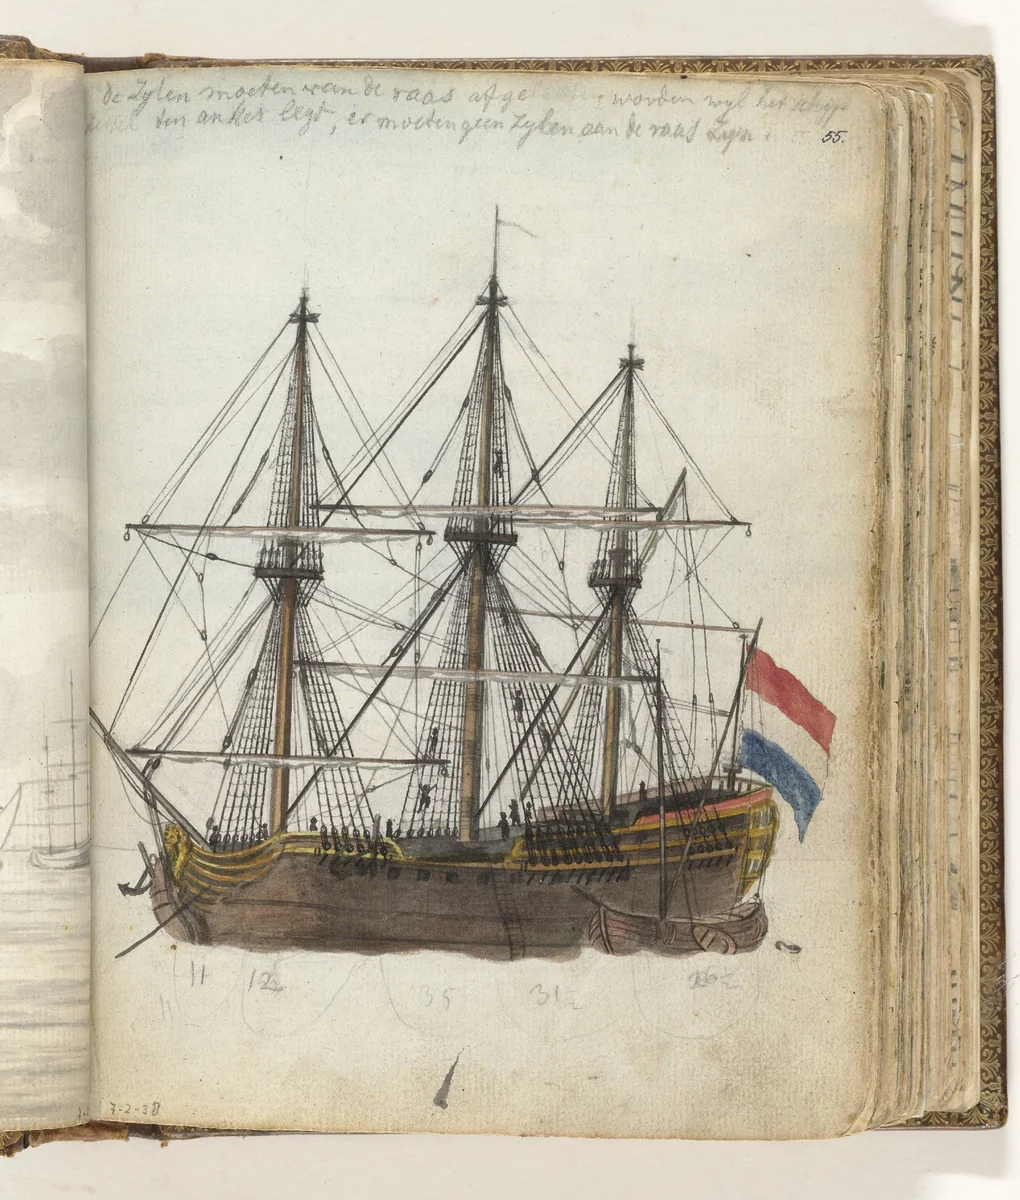 de Zylen moeten van de raas afge worden wyl het schip
ten anker legt, er moeten geen Zylen aan de raas Zyn
55.
11 12½ 35 31½ 26½
11
7-2-38